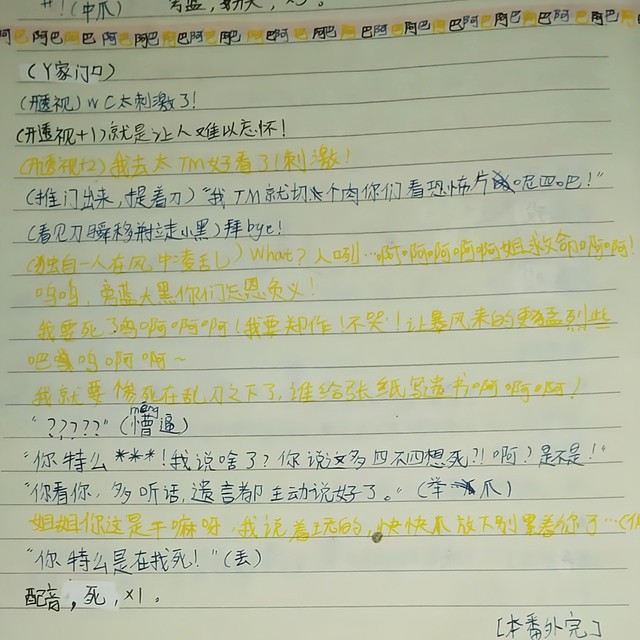 （Y家门口）
（开透视）WC太刺激了！
（开透视+1）就是让人难以忘怀！
（开透视+2）我去太TM好看了！刺激！
（推门出来，提着刀）"我TM就切个肉你们看恐怖片呢四吧！"
（看见刀瞬移并拉走小黑）拜bye！
（独自一人在风中凌乱）What？人呢…啊啊啊啊啊姐救命啊啊！
呜呜，大黑你们忘恩负义！
我要死了呜啊啊啊！我要却作！不哭！让暴风来的更猛烈些
吧呜啊啊~
我就要惨死在乱刀之下了，谁给张纸写遗书啊啊啊！
"？？？？？"（懵逼）meng
"你特么***！我说啥了？你说这多四不四想死？！啊？是不是！"
"你看你，多听话，遗言都主动说好了。"（举爪）
姐姐你这是干嘛呀，我说着玩的，快快爪放下别累着你了…
"你特么是在找死！"（丢）
配音，死，×1。
[本番外完]